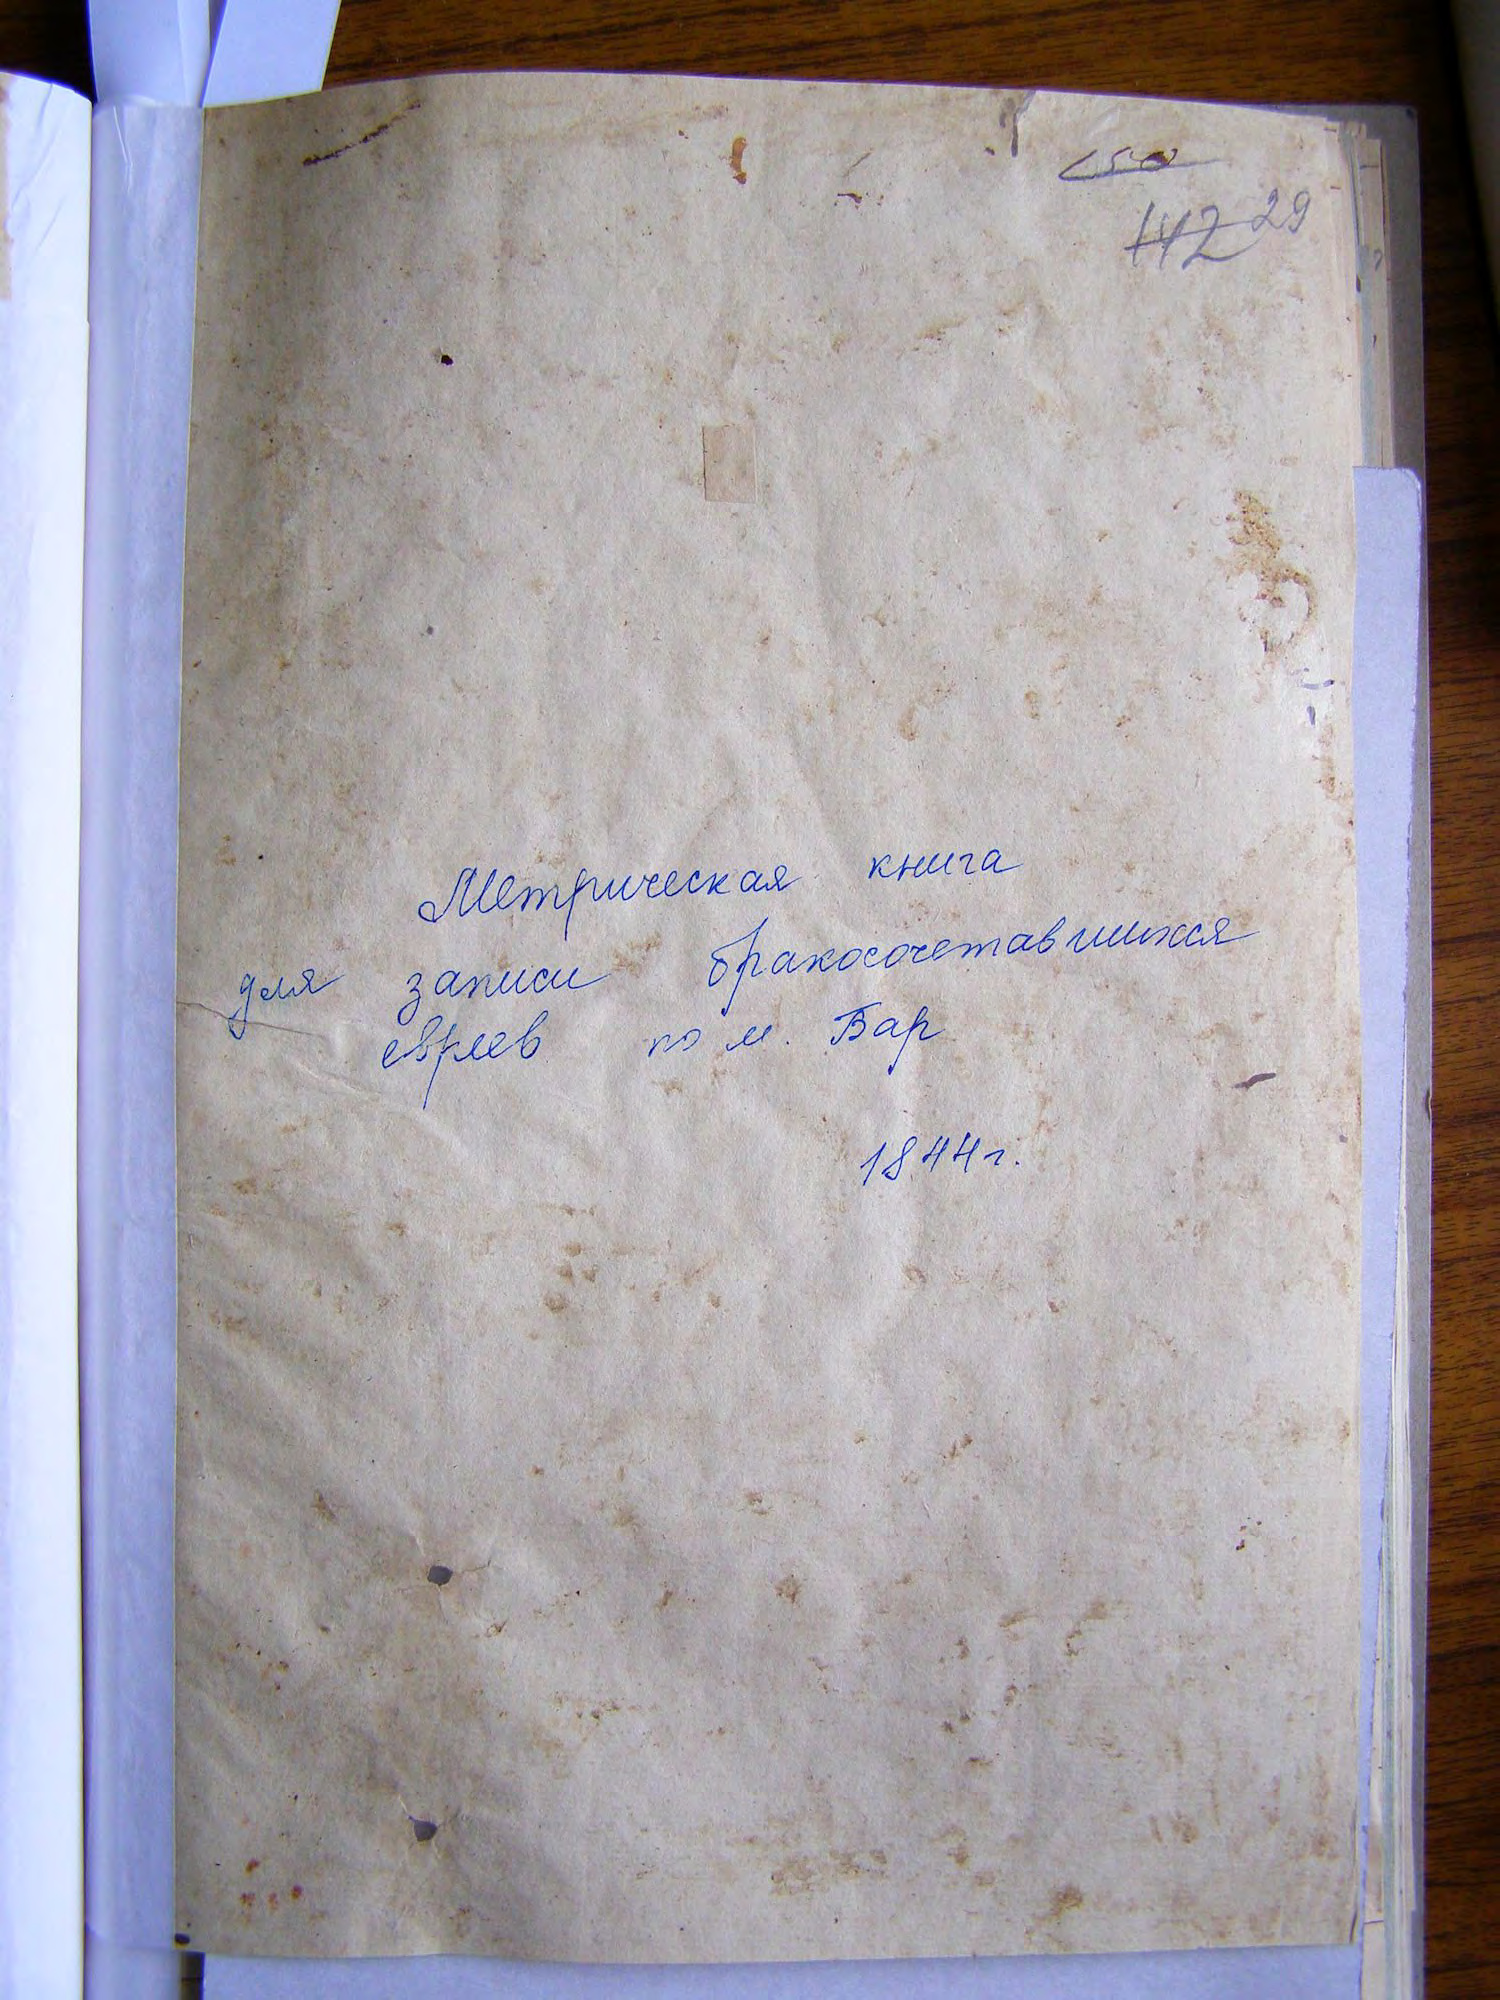 142 29
Метрическая книга
для записи бракосочетавшихся
евреев по м. Бар
1844 г.